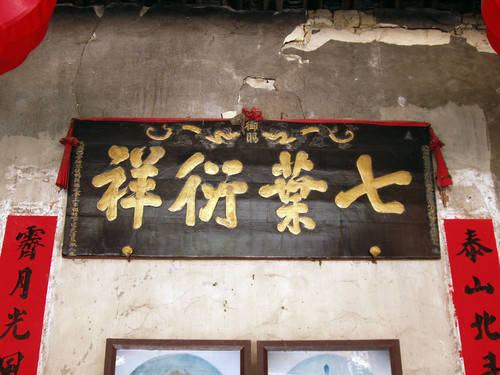 御賜
七葉衍祥
泰山北
霽月光